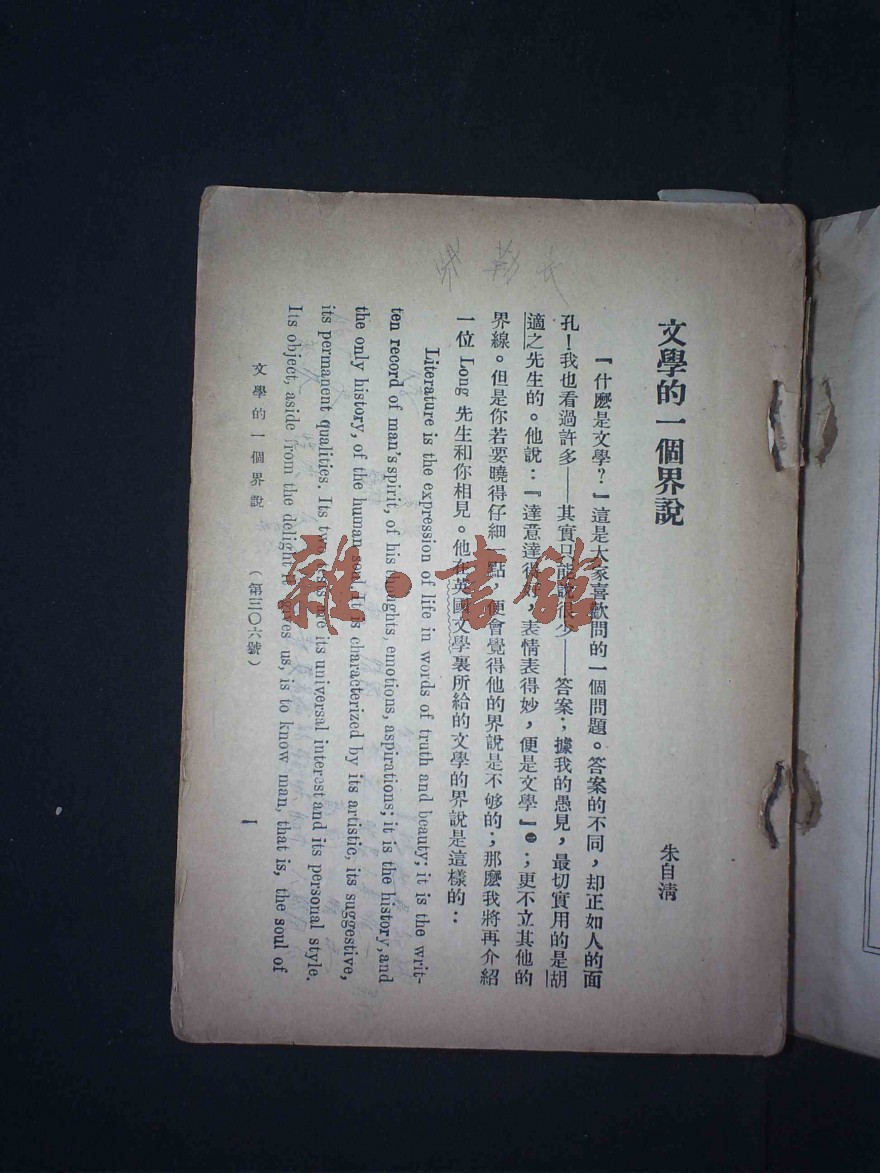 文學的一個界說
朱自清
「什麽是文學？」這是大家喜歡問的一個問題。答案的不同，却正如人的面
孔！我也看過許多——其實只能說很少——答案；據我的愚見，最切實用的是胡
適之先生的。他說：『達意達得好，表情表得妙，便是文學』㊀；更不立其他的
界線。但是你若要曉得仔細一點，便會覺得他的界說是不够的；那麽我將再介紹
一位 Long 先生和你相見。他在英國文學裏所給的文學的界說是這樣的：
Literature is the expression of life in words of truth and beauty; it is the writ-
ten record of man's spirit, of his thoughts, emotions, aspirations; it is the history, and
the only history, of the human soul. It is characterized by its artistic, its suggestive,
its permanent qualities. Its two tests are its universal interest and its personal style.
Its object, aside from the delight it gives us, is to know man, that is, the soul of
文學的一個界說 （第三〇六號） 1
雜·書館